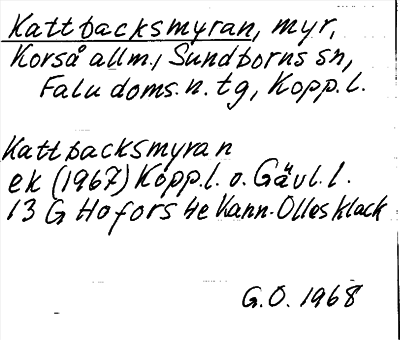 Kattbacksmyran, myr,
Korså allm., Sundborns sn,
Falu doms. n. tg, Kopp. l.
Kattbacksmyran
ek (1967) Kopp. l. o. Gävl. l.
13 G Hofors 4e Kann-Olles klack
G.O. 1968